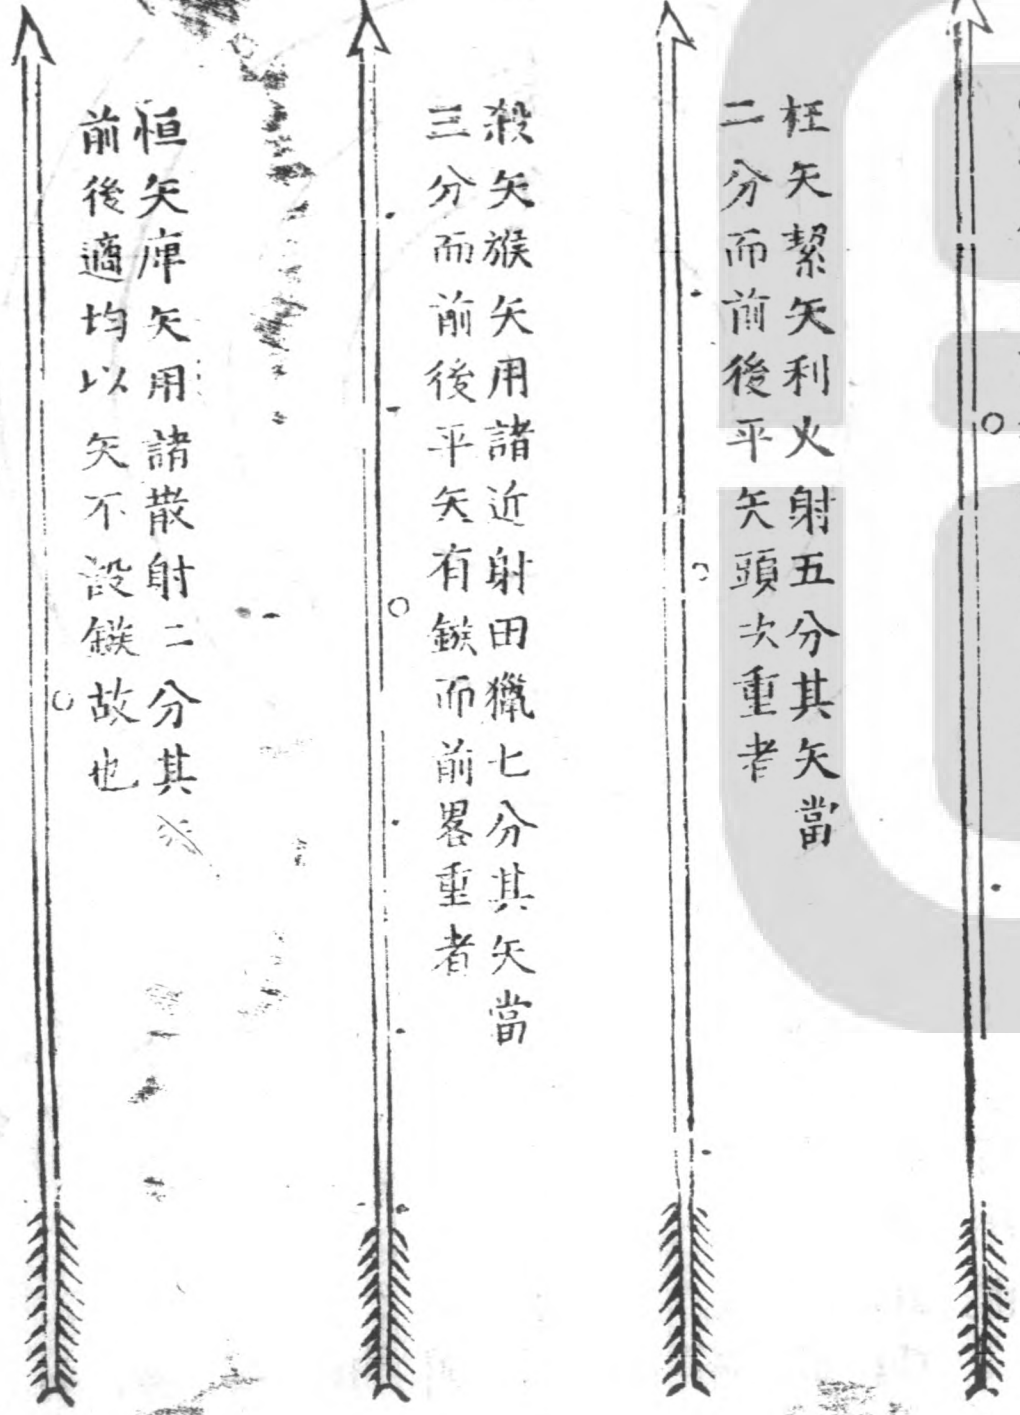 枉矢絜矢利火射五分其矢當
二分而前後平矢頭次重者
殺矢鍭矢用諸近射田獵七分其矢當
三分而前後平矢有鏃而前畧重者
恒矢庳矢用諸散射二分其
前後適均以矢不設鏃故也